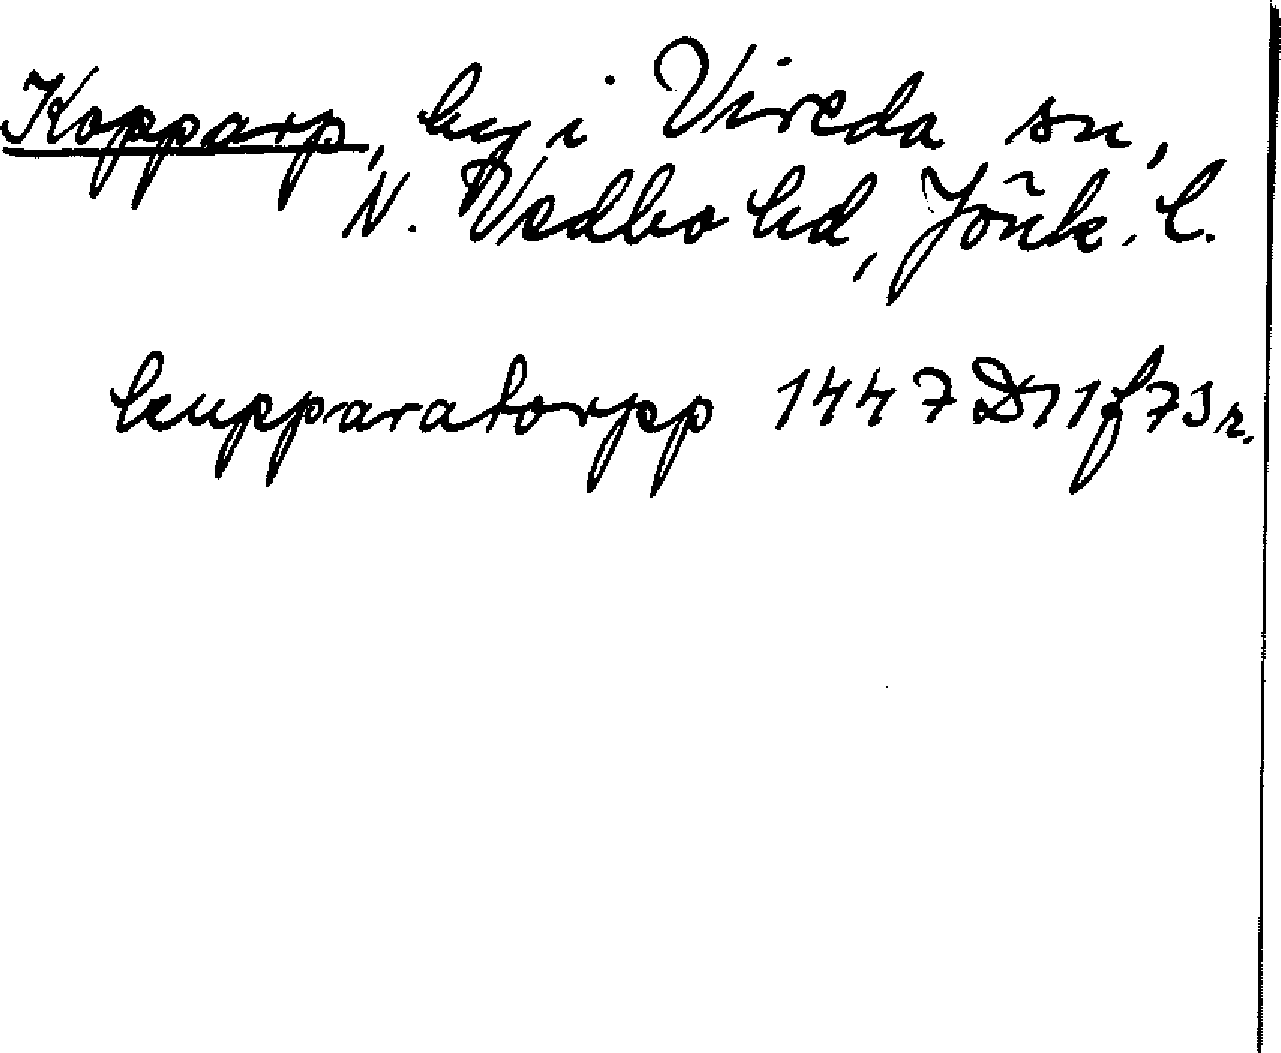 Kopparp, by i Vireda sn,
N. Vedbo hd, Jönk. l.
kupparatorpp 1447 D11 f73r.